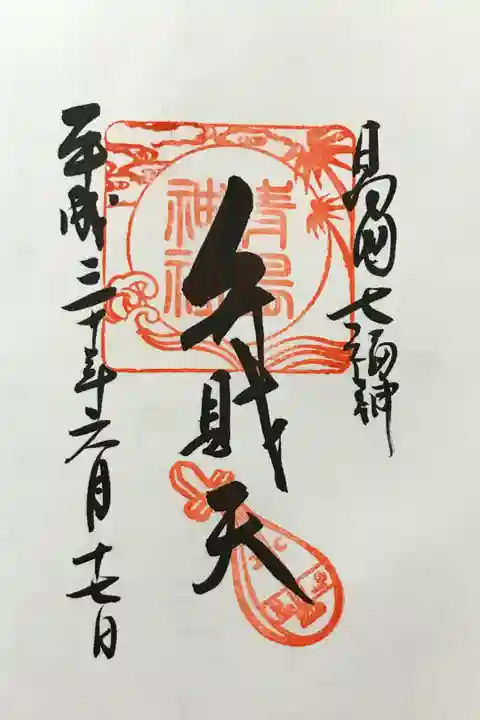 日向国七福神
弁財天
青島
神社
平成三十年六月十七日